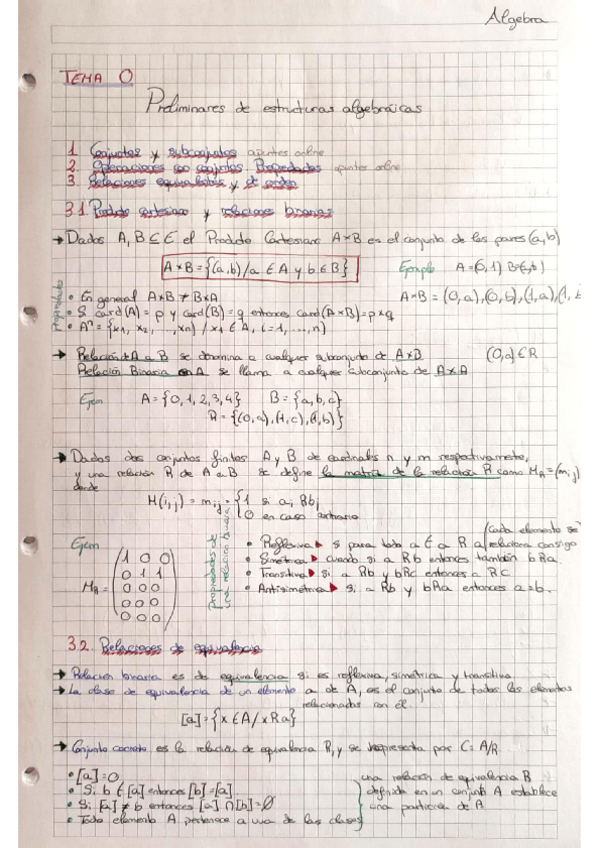 Algebra
TEMA 0
Preliminares de estructuras algebráicas
1. Conjuntos y subconjuntos apuntes online
2. Operaciones con conjuntos Propiedades apuntes online
3. Relaciones equivalencia y de orden
3.1. Producto cartesiano y relaciones binarias
→ Dados A, B ⊆ E el Producto Cartesiano A×B es el conjunto de los pares (a,b)
A×B = {(a,b) / a ∈ A y b ∈ B}
Ejemplo A=(0,1)
A×B = (0,a),(0,b),(1,a),(1,
propiedades
• En general A×B ≠ B×A
• Si card(A) = p y card(B) = q entonces card(A×B) = p×q
• Aⁿ = {x1, x2, ..., xn) / xi ∈ A, i=1, ..., n)
→ Relación A a B se denomina a cualquier subconjunto de A×B (0,a) ∈ R
Relación Binaria en A se llama a cualquier subconjunto de A×A
Ejem A = {0,1,2,3,4} B = {a,b,c}
R = {(0,a),(1,c),(1,b)}
→ Dados dos conjuntos finitos A y B de cardinales n y m respectivamente,
y una relación R de A a B se define la matriz de la relación R como M_R = (m_ij)
donde
M(i,j) = m_ij = {1 si a_i R b_j
0 en caso contrario
Ejem
M_R =
(1 0 0)
0 1 1
0 0 0
0 0 0
0 0 0
Propiedades de una relación binaria
• Reflexiva ▶ si para todo a ∈ A a R a (cada elemento se relaciona consigo
• Simétrica ▶ cuando si a Rb entonces también b Ra.
• Transitiva ▶ si a Rb y bRc entonces a R C
• Antisimétrica ▶ Si a Rb y bRa entonces a=b.
3.2. Relaciones de equivalencia
→ Relación binaria es de equivalencia si es reflexiva, simétrica y transitiva
→ La clase de equivalencia de un elemento a de A, es el conjunto de todos los elementos
relacionados con él.
[a] = {x ∈ A / x R a}
→ Conjunto cociente es la relación de equivalencia R, y se representa por C: A/R
• [a] = 0
• Si b ∈ [a] entonces [b] = [a]
• Si [a] ≠ b entonces [a] ∩ [b] = ∅
• Todo elemento A pertenece a una de las clases
una relación de equivalencia B
definida en un conjunto A establece
una partición de A